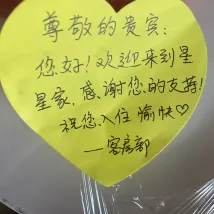 尊敬的贵宾:
您好!欢迎来到星
星家,感谢您的支持!
祝您入住愉快♡
——客房部